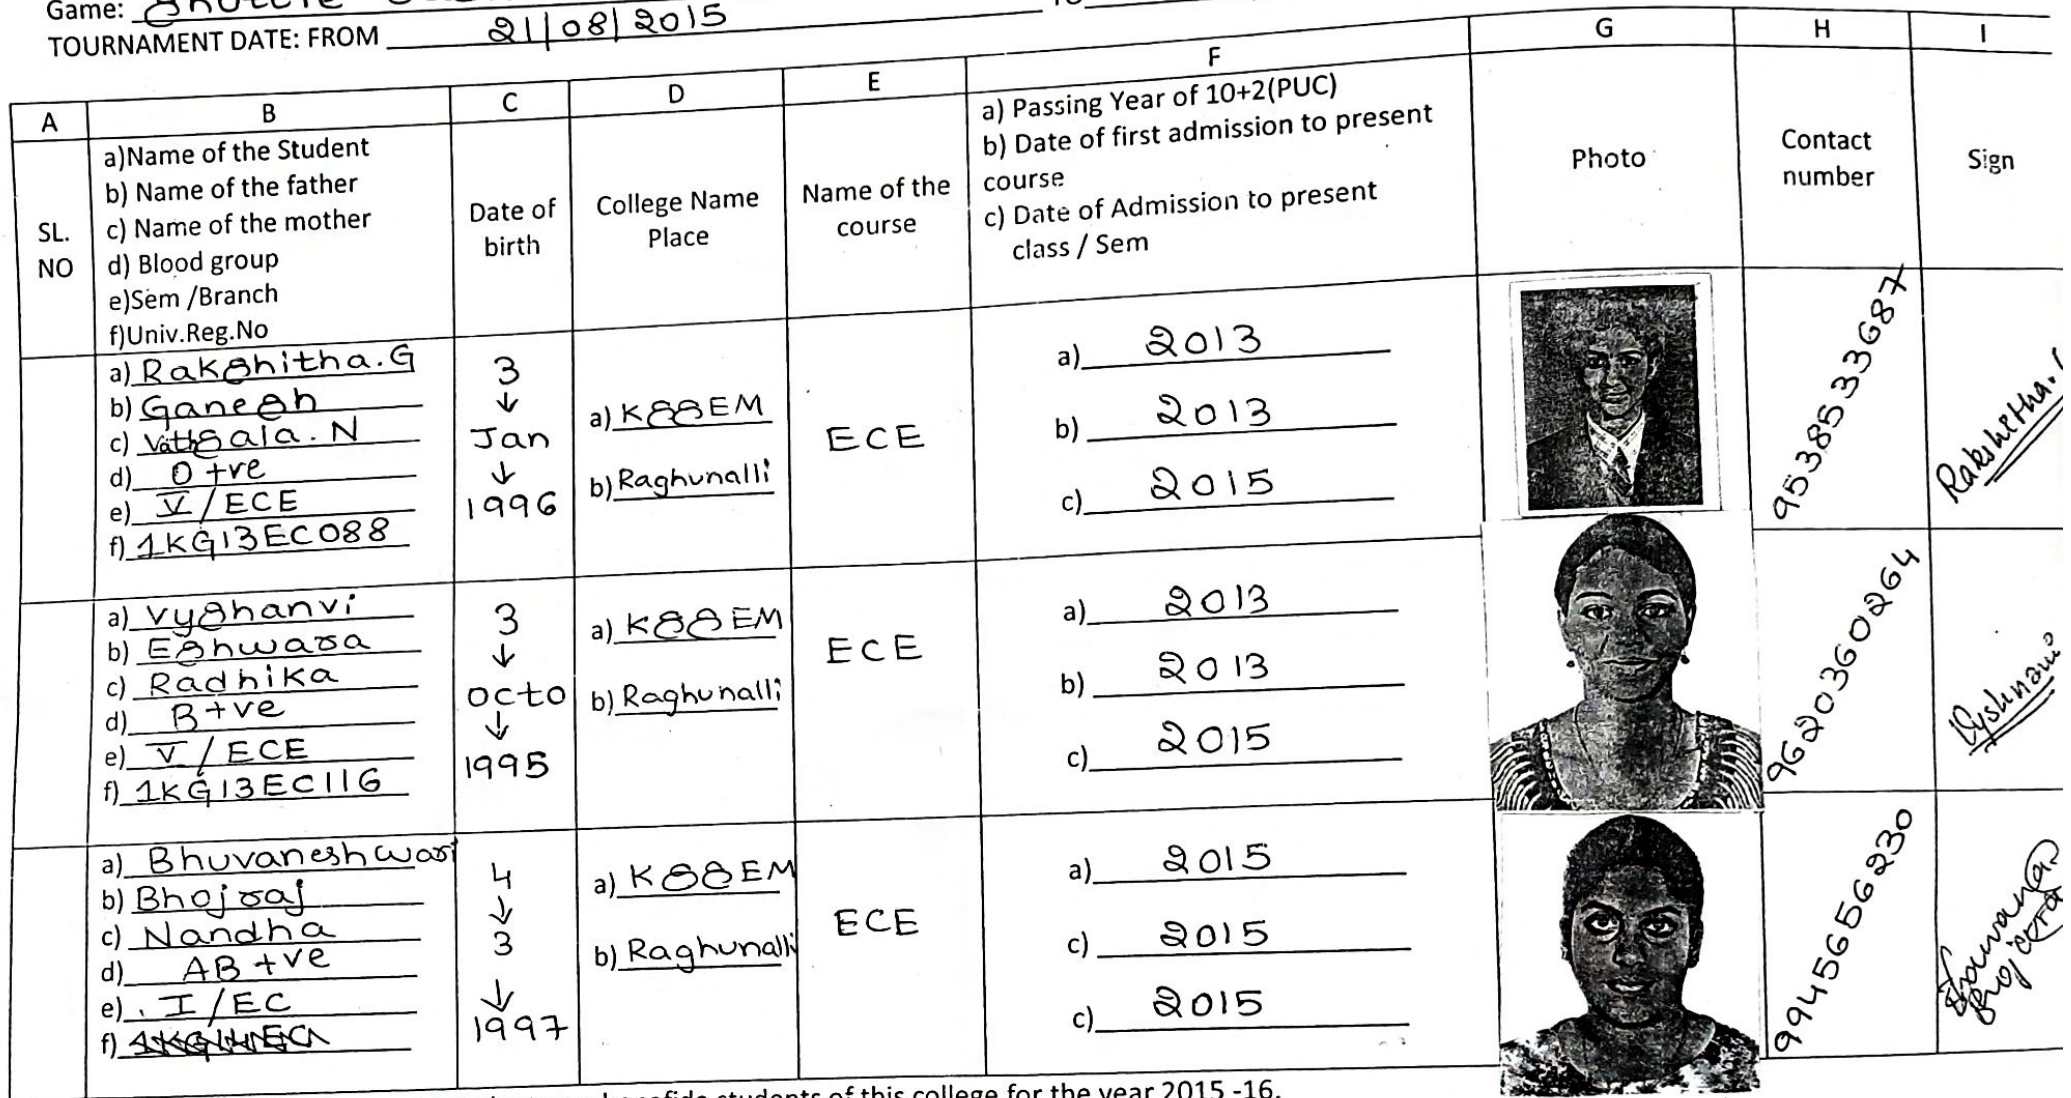 Game: Shuttle
TOURNAMENT DATE: FROM 21/08/2015
A B C D E F G H I
SL. NO
a)Name of the Student
b) Name of the father
c) Name of the mother
d) Blood group
e)Sem /Branch
f)Univ.Reg.No
Date of birth
College Name
Place
Name of the course
a) Passing Year of 10+2(PUC)
b) Date of first admission to present
course
c) Date of Admission to present
class / Sem
Photo
Contact
number
Sign
a) Rakshitha.G
b) Ganesh
c) Vathsala.N
d) O +ve
e) V/ECE
f) 1KG13EC088
3
↓
Jan
↓
1996
a) KSSEM
b) Raghunalli
ECE
a) 2013
b) 2013
c) 2015
9538533687
Rakshitha.
a) Vyshanvi
b) Eshwara
c) Radhika
d) B+ve
e) V/ECE
f) 1KG13EC116
3
↓
octo
↓
1995
a) KSSEM
b) Raghunalli
ECE
a) 2013
b) 2013
c) 2015
9620360264
Vyshnavi
a) Bhuvaneshwari
b) Bhojraj
c) Nandha
d) AB +ve
e) I/EC
f)
4
↓
3
↓
1997
a) KSSEM
b) Raghunalli
ECE
a) 2015
c) 2015
c) 2015
9945656230
students of this college for the year 2015 -16.